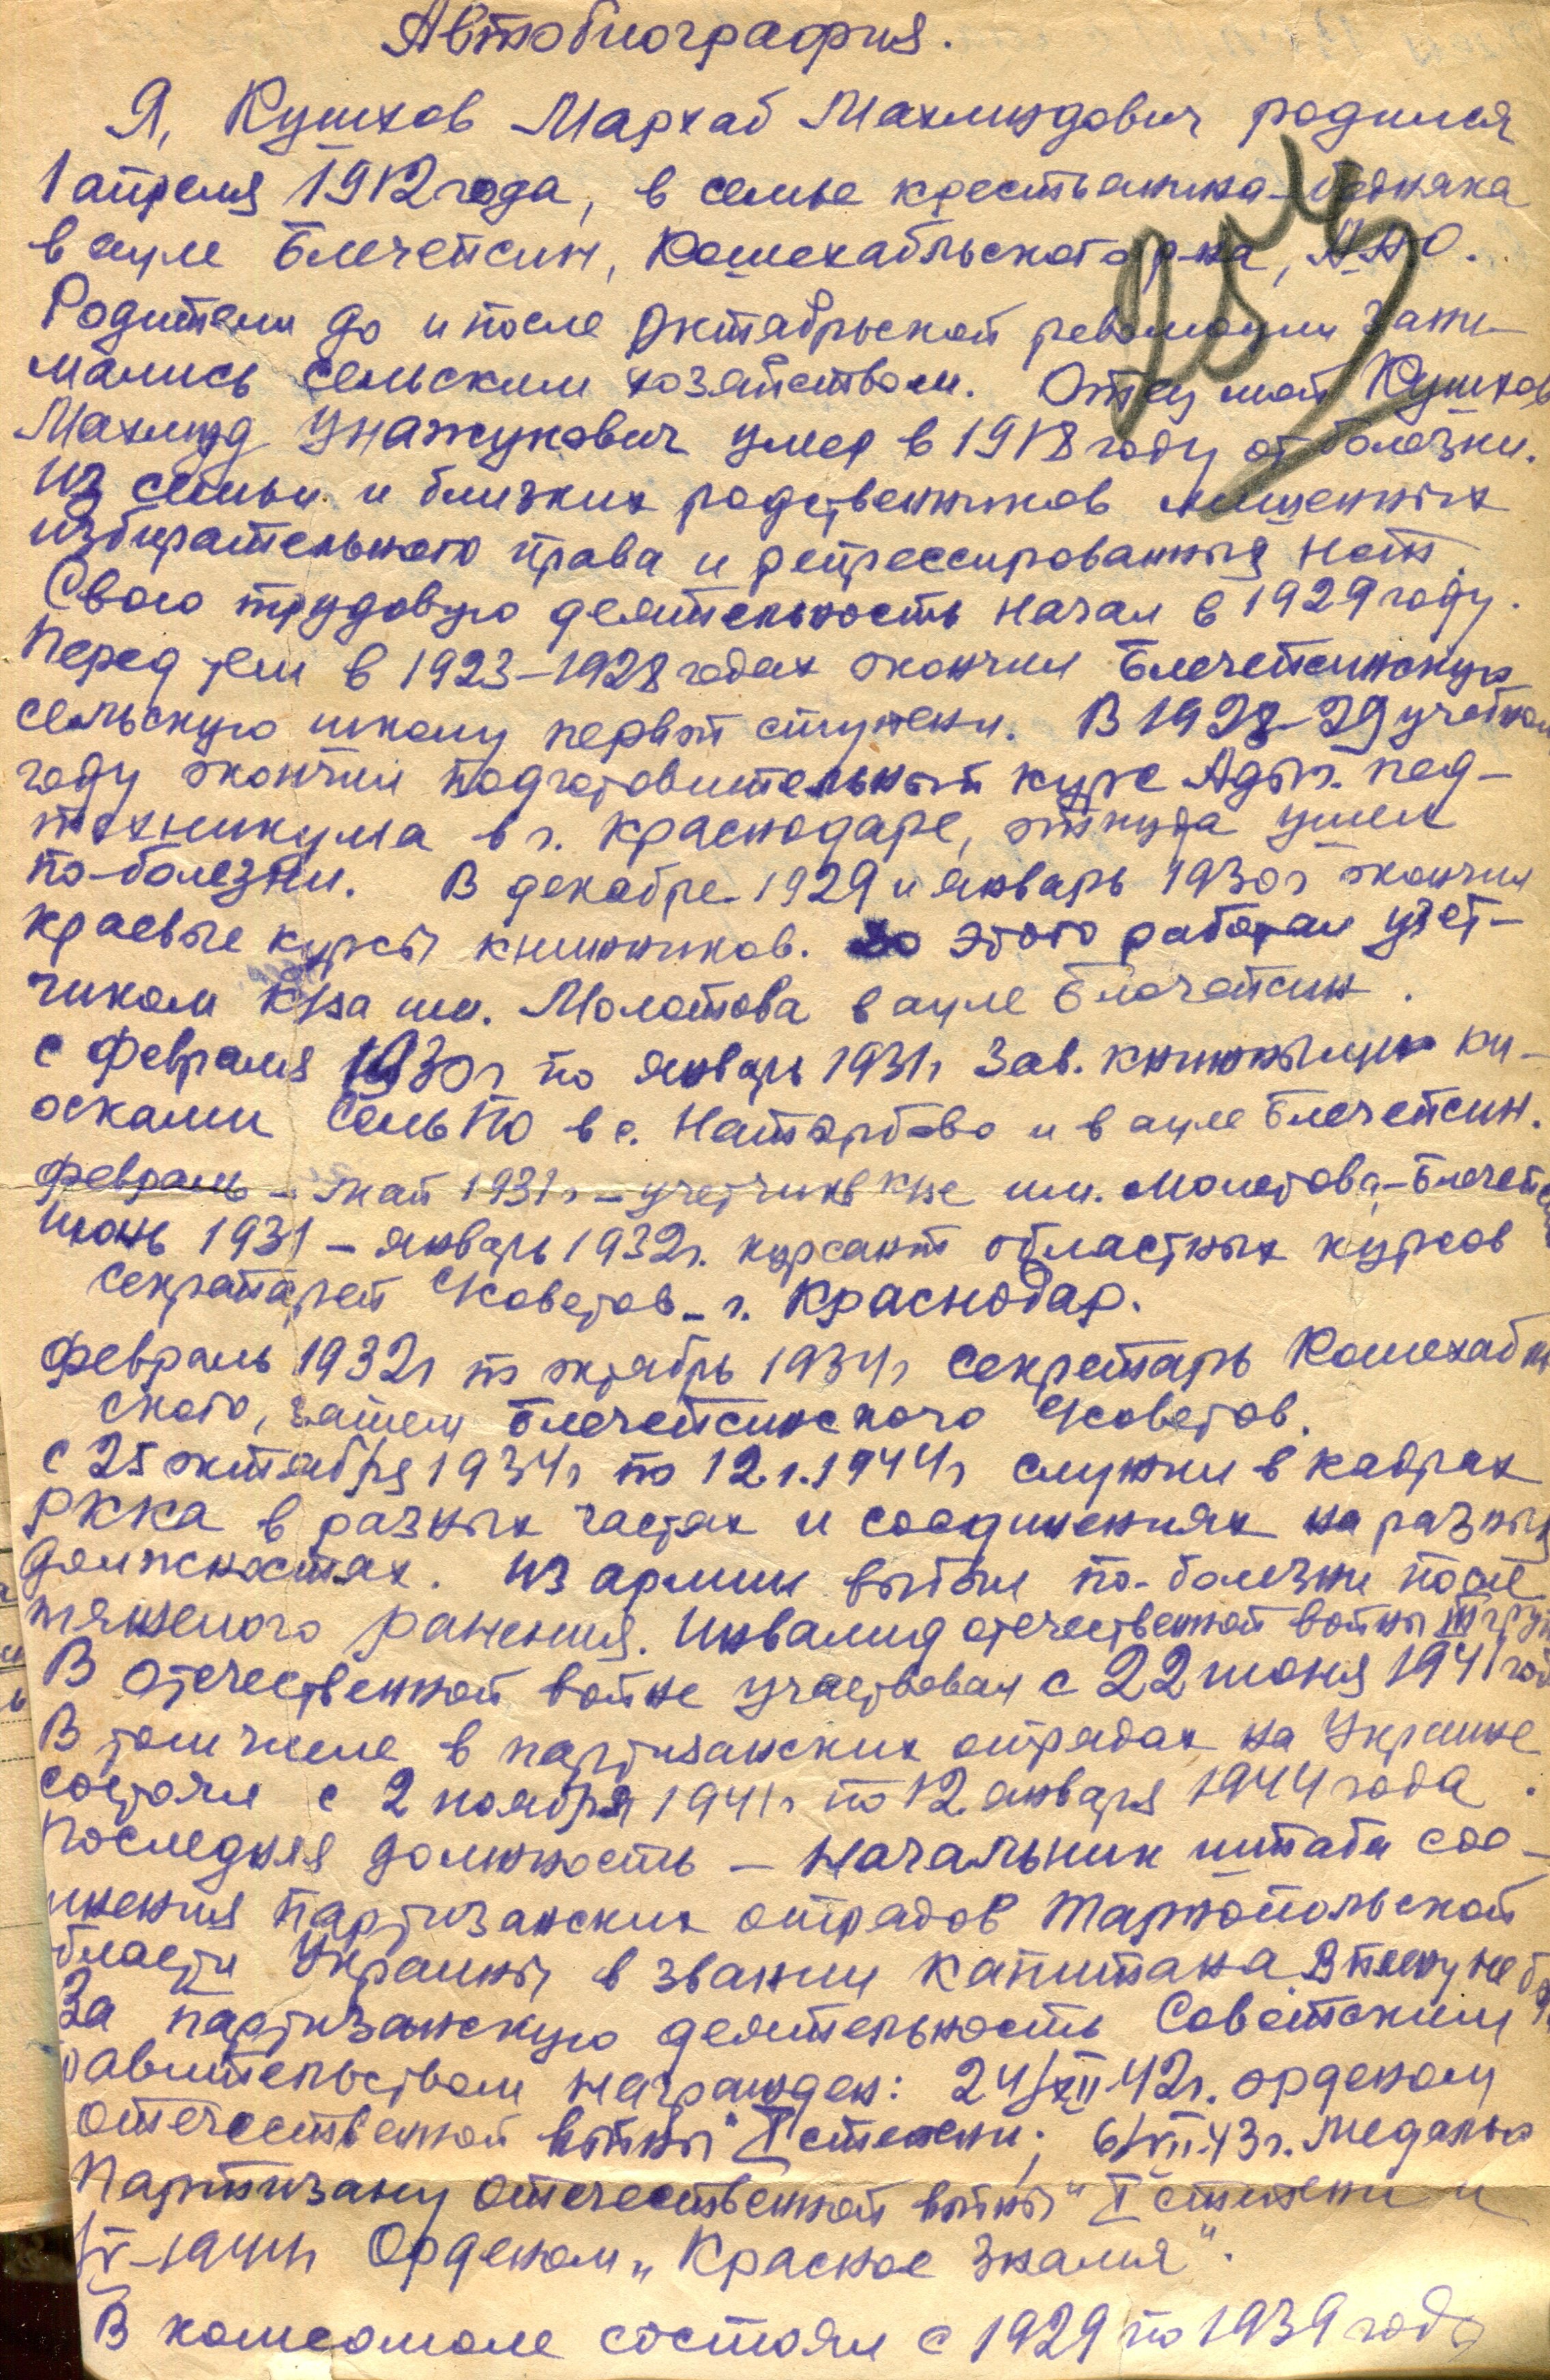 Автобиография.
Я, Кушхов Мархаб Махмудович родился
1 апреля 1912 года, в семье крестьянина-бедняка
в ауле Блечепсин, Кошехабльского р-на, ААО.
Родители до и после Октябрьской революции зани-
мались сельским хозяйством. Отец мой Кушхов
Махмуд Унажукович умер в 1918 году от болезни.
Из семьи и близких родственников лишенных
избирательного права и репрессированных нет.
Свою трудовую деятельность начал в 1929 году.
Перед тем в 1923-1928 годах окончил Блечепсинскую
сельскую школу первой ступени. В 1928-29 учебном
году окончил подготовительный курс Адыг. пед-
техникума в г. Краснодаре, откуда ушел
по-болезни. В декабре 1929 и январь 1930 г окончил
краевые курсы книжников. До этого работал учет-
чиком к/за им. Молотова в ауле Блечепсин.
С февраля 1930 г по январь 1931 г зав. книжными ки-
осками СельПО в с. Натырбово и в ауле Блечепсин.
Февраль - май 1931 г - учетчик в к-зе им. Молотова-Блечепсин
Июнь 1931 - январь 1932 г. курсант областных курсов
секретарей с/советов - г. Краснодар.
Февраль 1932 г по октябрь 1934 г секретарь Кошехабль
ского, затем Блечепсинского с/советов.
С 25 октября 1934 г по 12.1.1944 г служил в кадрах
РККА в разных частях и соединениях на разных
должностях. Из армии выбыл по-болезни после
тяжелого ранения. Инвалид отечественной войны III груп
В отечественной войне участвовал с 22 июня 1941 год
В том числе в партизанских отрядах на Украине
состоял с 2 ноября 1941 г по 12 января 1944 года.
Последняя должность - начальник штаба сое-
инения партизанских отрядов Тарнопольской
бласти Украины в звании капитана. В плену не бы
За партизанскую деятельность Советским
равительством награжден: 24/XII.42 г. орденом
отечественной войны" I степени; 6/VII.43 г. медалью
Партизану отечественной войны" I степени и
/V-1944 г Орденом „Красное знамя".
В комсомоле состоял с 1929 по 1939 год